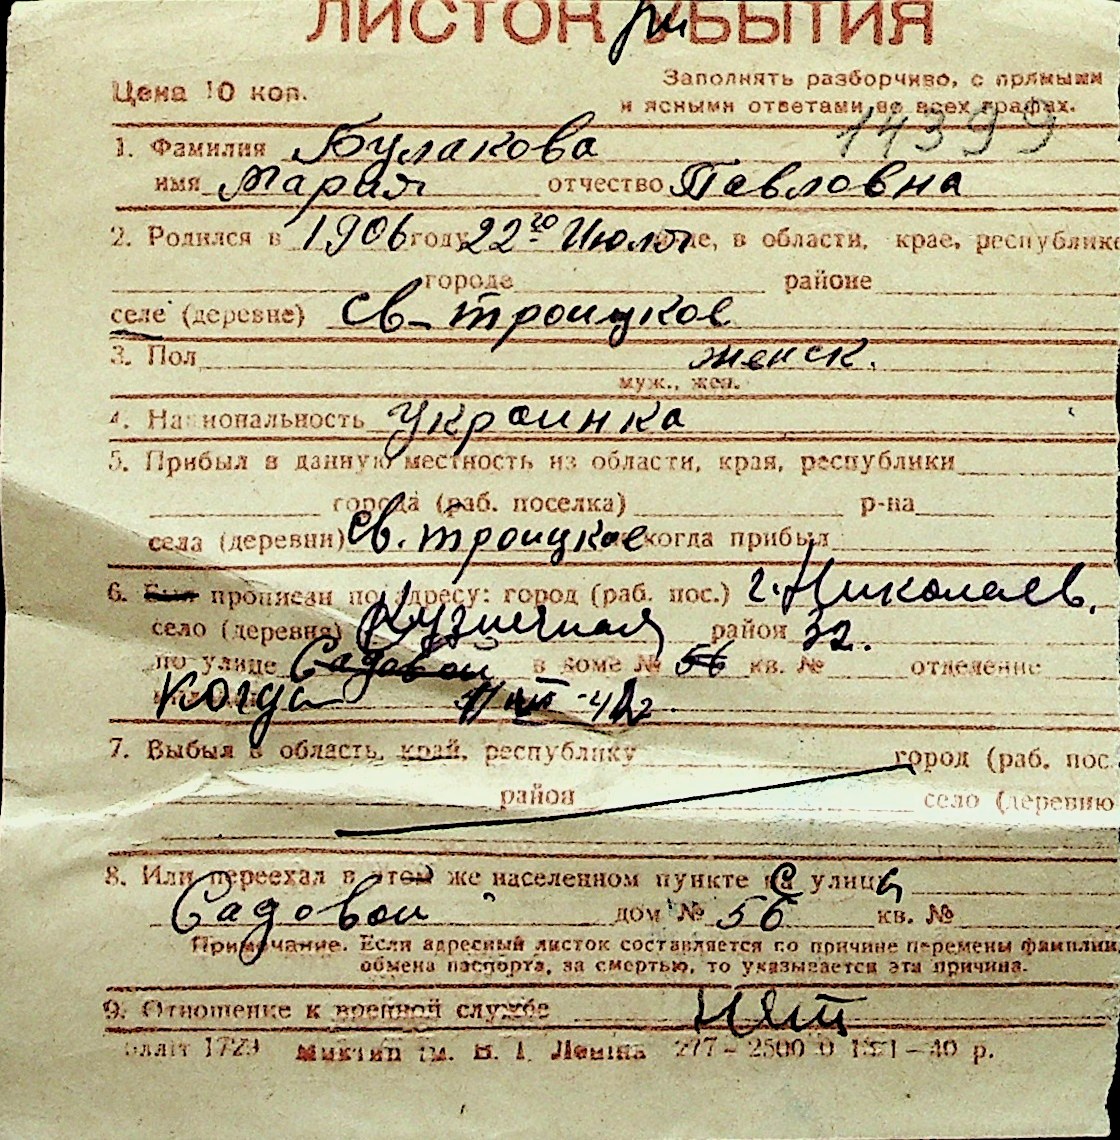 ЛИСТОК УБЫТИЯ
Цена 10 коп.
Заполнять разборчиво, с прямыми
и ясными ответами во всех графах.
14399
1. Фамилия Булакова
имя Мария отчество Павловна
2. Родился в 1906 году 22го Июля де, в области, крае, республике
городе районе
селе (деревне) св-троицкое
3. Пол женск.
муж., жен.
4. Национальность украинка
5. Прибыл в данную местность из области, края, республики
города (раб. поселка) р-на
села (деревни) св. троицкое когда прибыл
6. Был прописан по адресу: город (раб. пос.) г. Николаев.
село (деревня) Кузнечная район 32.
по улице Садовой в доме № 56 кв. № отделение
Когда
7. Выбыл в область, край, республику город (раб. пос.
район село (деревню
8. Или переехал в этом же населенном пункте са улицы
Садовой дом № 56 кв. №
Примечание. Если адресный листок составляется по причине перемены фамилии,
обмена паспорта, за смертью, то указывается эта причина.
9. Отношение к военной службе
1729 ім. В. І. Леніна 277 – 2500 – 40 р.